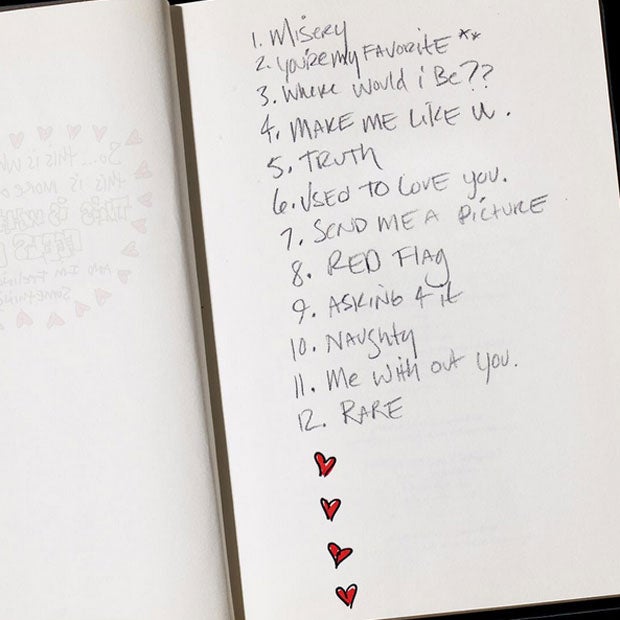 1. Misery
2. you're my FAVORITE **
3. Where would i Be??
4. MAKE ME LIKE U.
5. TRUTH
6. USED TO LOVE YOU.
7. SEND ME A PICTURE
8. RED Flag
9. ASKING 4 it
10. NAUGHTY
11. Me with out you.
12. RARE
So... this is wh
this is more o
THIS IS WHAT
FEELS